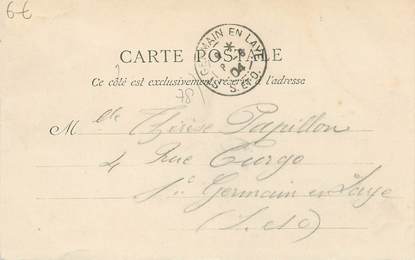 6€
CARTE POSTALE
Ce côté est exclusivement réservé à l'adresse
ST GERMAIN EN LAYE
04
S. ET O.
78
Mlle Thérèse Papillon
4 Rue Turgo
St Germain en Laye
(S. et O)